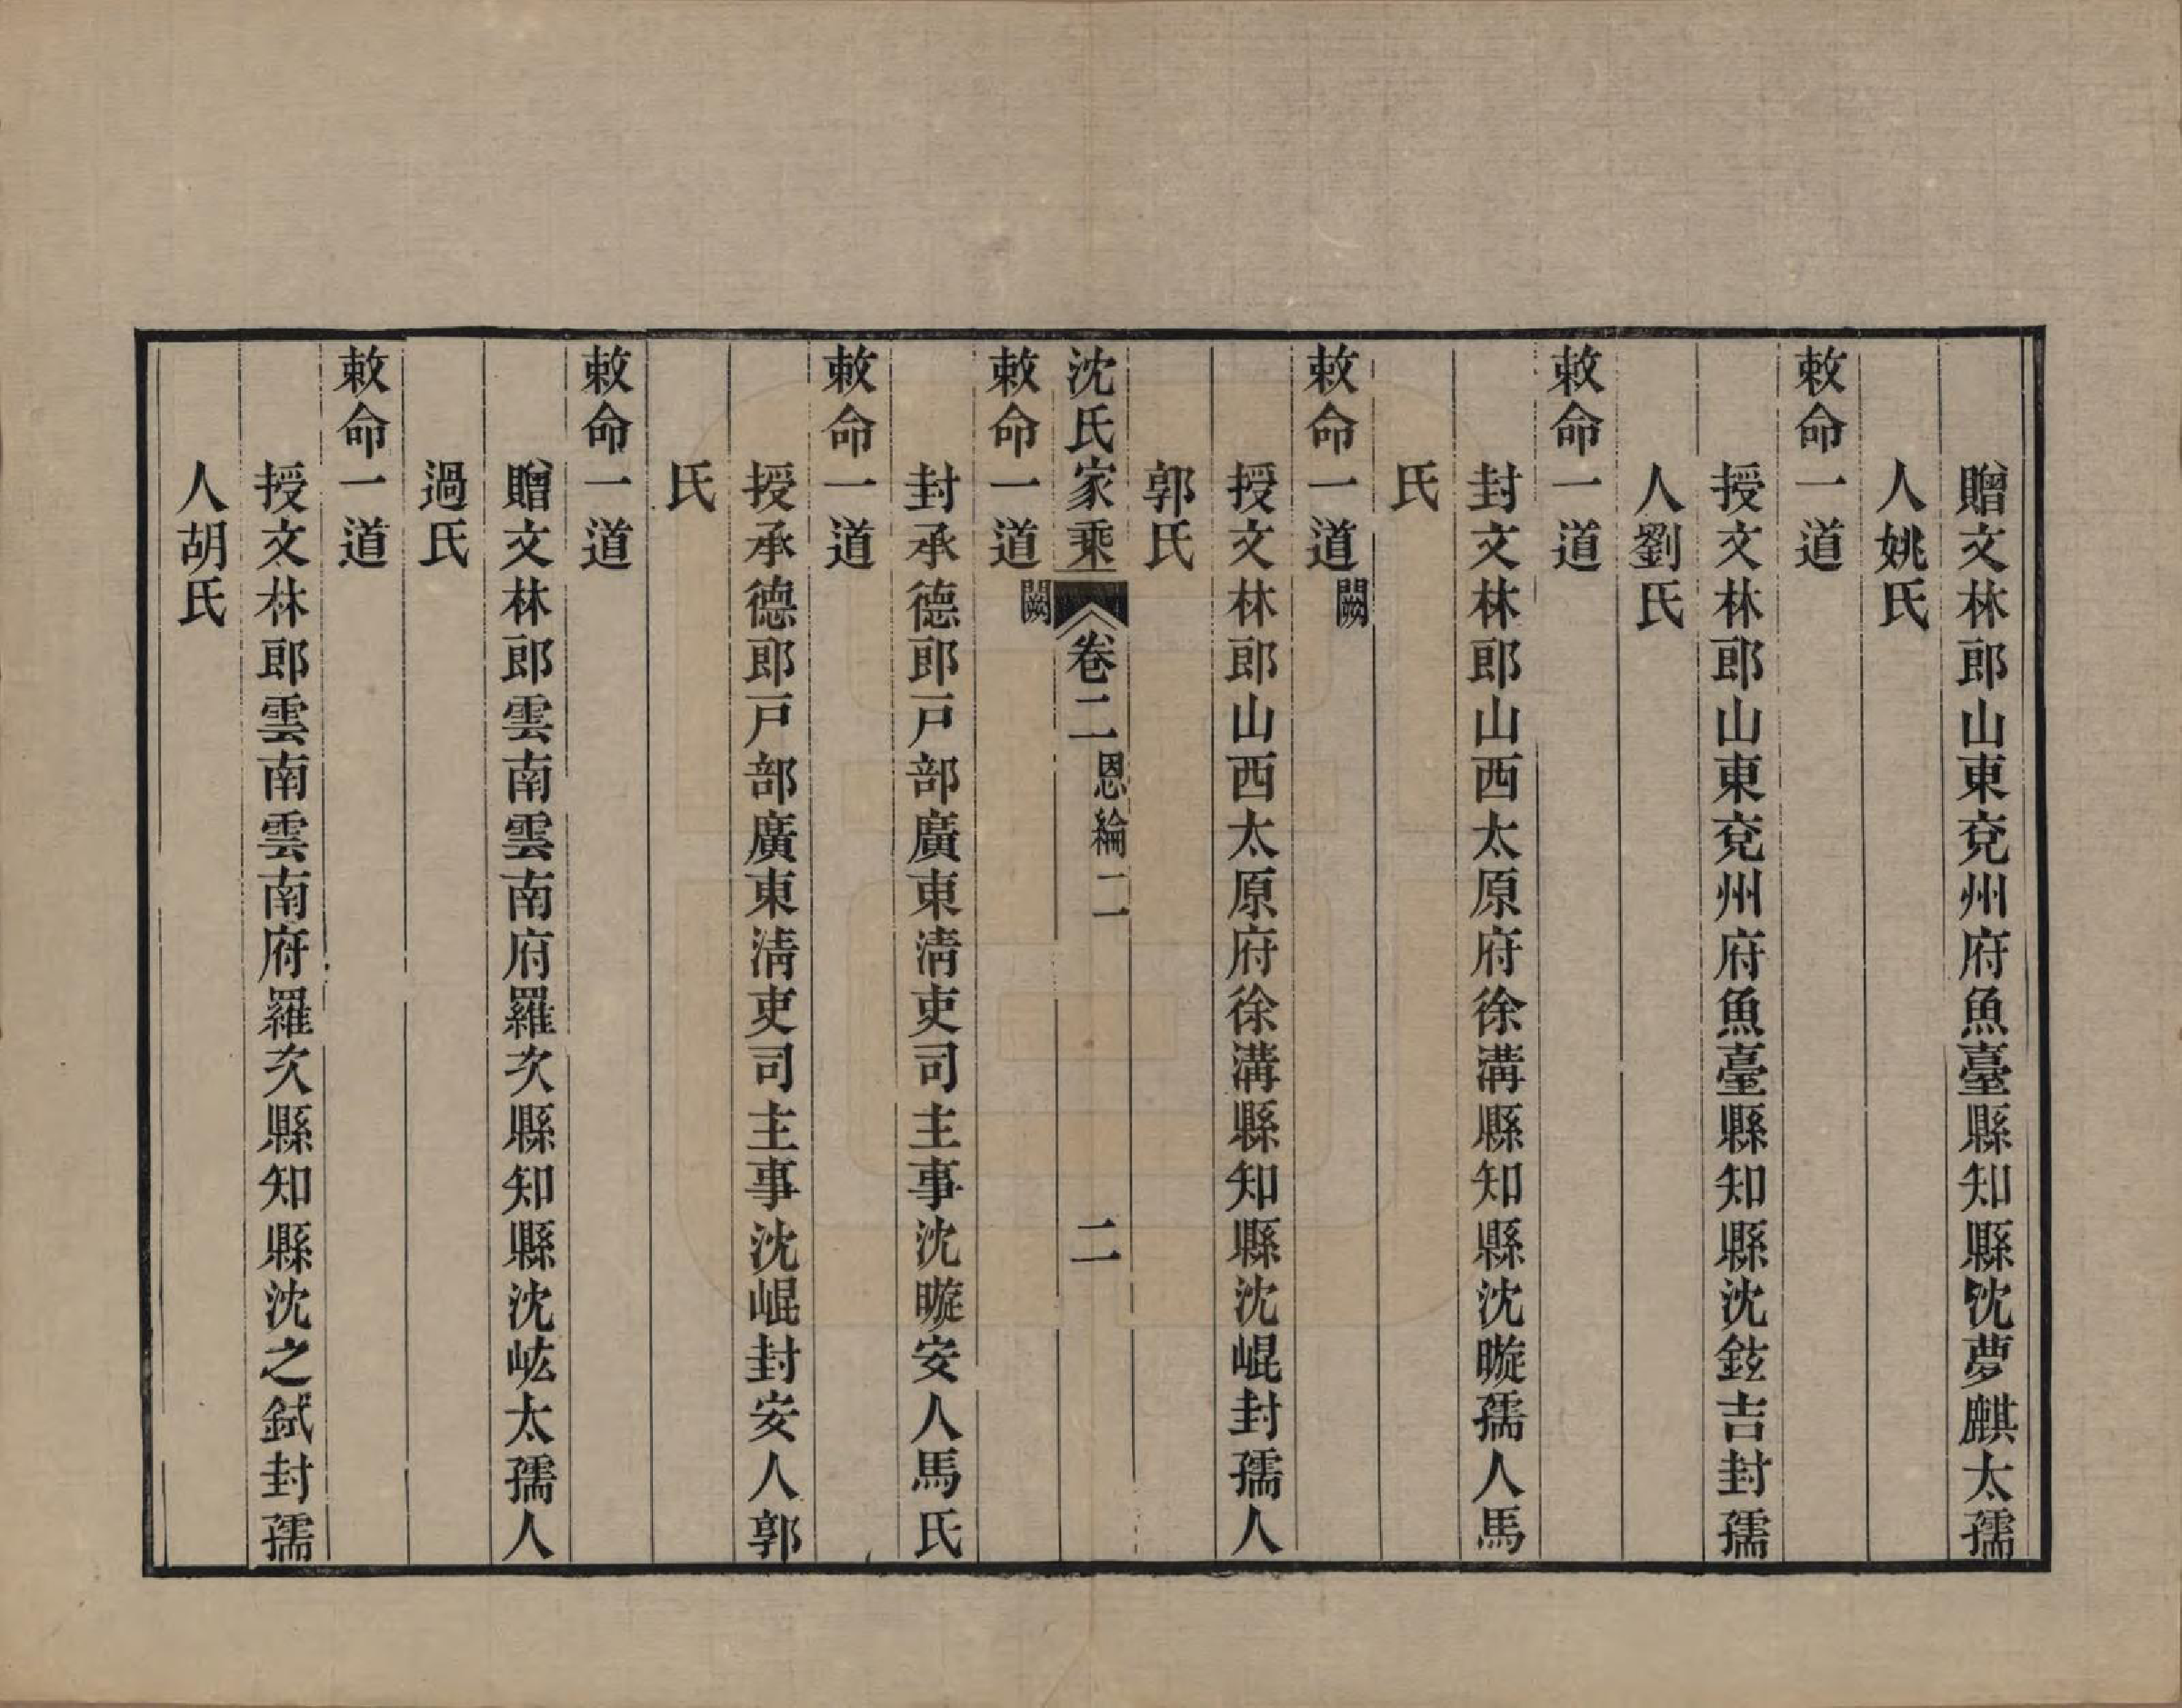 贈文林郎山東兗州府魚臺縣知縣沈夢麒太孺
人姚氏
敕命一道
授文林郎山東兗州府魚臺縣知縣沈鉉吉封孺
人劉氏
敕命一道
封文林郎山西太原府徐溝縣知縣沈暶孺人馬
氏
敕命一道闕
授文林郎山西太原府徐溝縣知縣沈崐封孺人
郭氏
沈氏家乘 卷二 恩綸二 二
敕命一道闕
封承德郎戸部廣東淸吏司主事沈暶安人馬氏
敕命一道
授承德郎戸部廣東淸吏司主事沈崐封安人郭
氏
敕命一道
贈文林郎雲南雲南府羅次縣知縣沈㞾太孺人
過氏
敕命一道
授文林郎雲南雲南府羅次縣知縣沈之鉽封孺
人胡氏